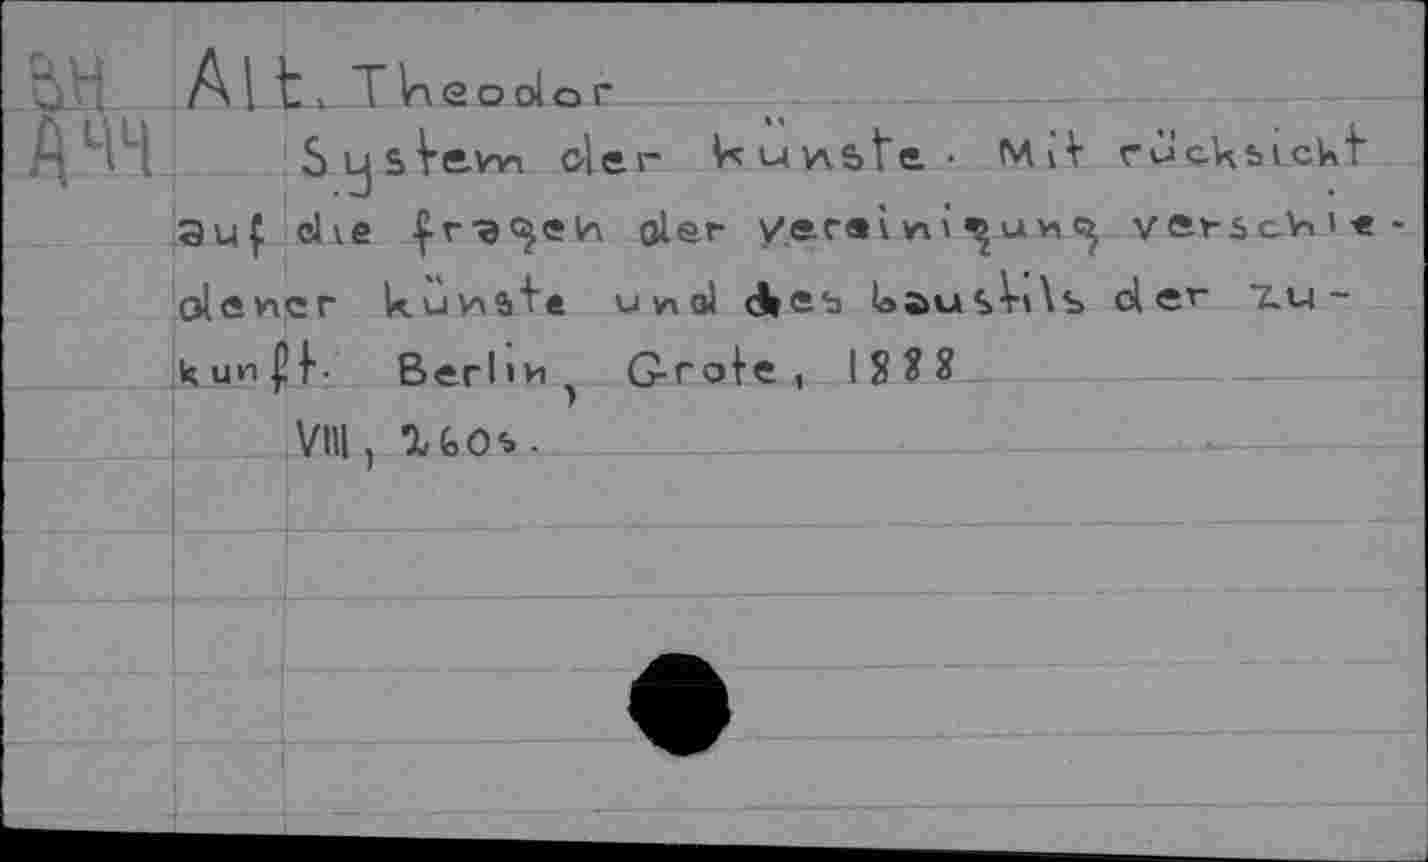 BH Alt, Theodor
A44 System der künste. Mit rücksicht
auf die fragen der vereinigung verschie-
dener künste und des baustils der zu-
kunft. Berlin, Grote, 1888
VIII, 260s.